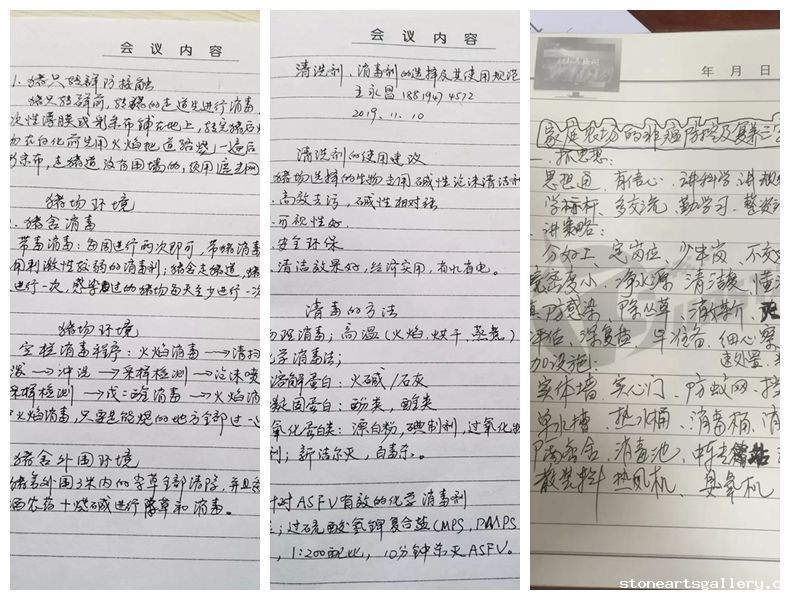 会议内容
1、猪只经群防接触
猪只转群前,转猪的走道先进行消毒,
次性薄膜或彩条布铺在地上,转完猪后
动在白化前先用火焰把道路烧一遍后
彩条布,走猪道没有围墙的,使用
猪场环境
猪舍消毒
带毒消毒:每周进行两次即可,带猪消毒
用刺激性较弱的消毒剂;猪舍走猪道、
进行一次,感染过的猪场每天至少进行一次
猪场环境
空栏消毒程序:火焰消毒→清扫
泼→冲洗→采样检测→泡沫喷
采样检测→戊二醛消毒→火焰消
火焰消毒,只要是能烧的地方全部过一
猪舍外围环境
猪舍外围3米内的杂草全部清除,并且
洒农药+烧碱进行除草和消毒。
会议内容
清洗剂、消毒剂的选择及其使用规范
王永昌 1881947 4572
2019.11.10
清洗剂的使用建议
猪场选择的生物专用碱性泡沫清洁剂
高效去污,碱性相对强
可视性好.
安全环保
清洁效果好,经济实用,省水省电。
消毒的方法
物理消毒;高温(火焰、烘干、蒸煮)
化学消毒法;
溶解蛋白:火碱/石灰
凝固蛋白:酚类,醛类
氧化蛋白类:漂白粉,碘制剂,过氧化物
剂;新洁尔灭,百毒杀.
针对ASFV有效的化学消毒剂
过硫酸氢钾复合盐(MPS,PMPS
,1:200配比,10分钟杀灭ASFV。
年 月 日
家庭农场的非瘟防控及复养三
一.抓思想:
思想通、有信心、讲科学、讲规
学标杆、多交流、勤学习、整
讲策略:
分好工、定岗位、少串岗、不交
密度小、净水源、清洁货、懂
防感染、除丛草、消
评估、深复盘、早准备、细心察
速处置
加设施:
实体墙、实心门、防蚊网、挡
单水槽、热水桶、消毒桶、消
隔离舍、消毒池、中转站
散装料、热风机、臭氧机
stoneartsgallery.c